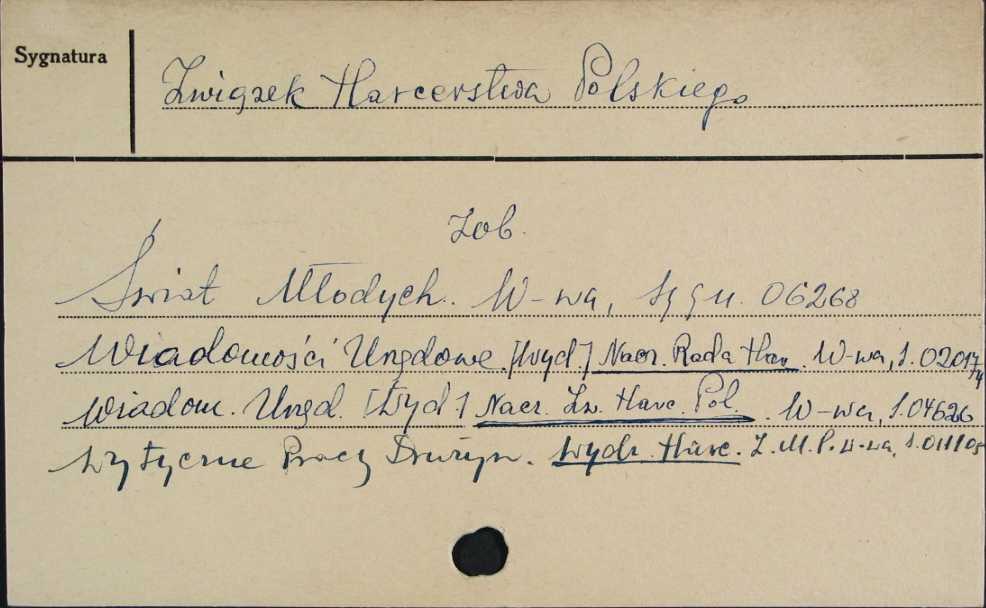 Sygnatura
Związek Harcerstwa Polskiego
Zob.
Świat Młodych. W-wa, Sygn. 06268
Wiadomości Urzędowe. [Wyd.] Nacz. Rada Harc. W-wa, S. 02017
Wiadom. Urzęd. [Wyd.] Nacz. Zw. Harc. Pol. W-wa, S. 04626
Wytyczne Pracy Drużyn. Wydz. Harc. Z.M.P. W-wa, S. 011105